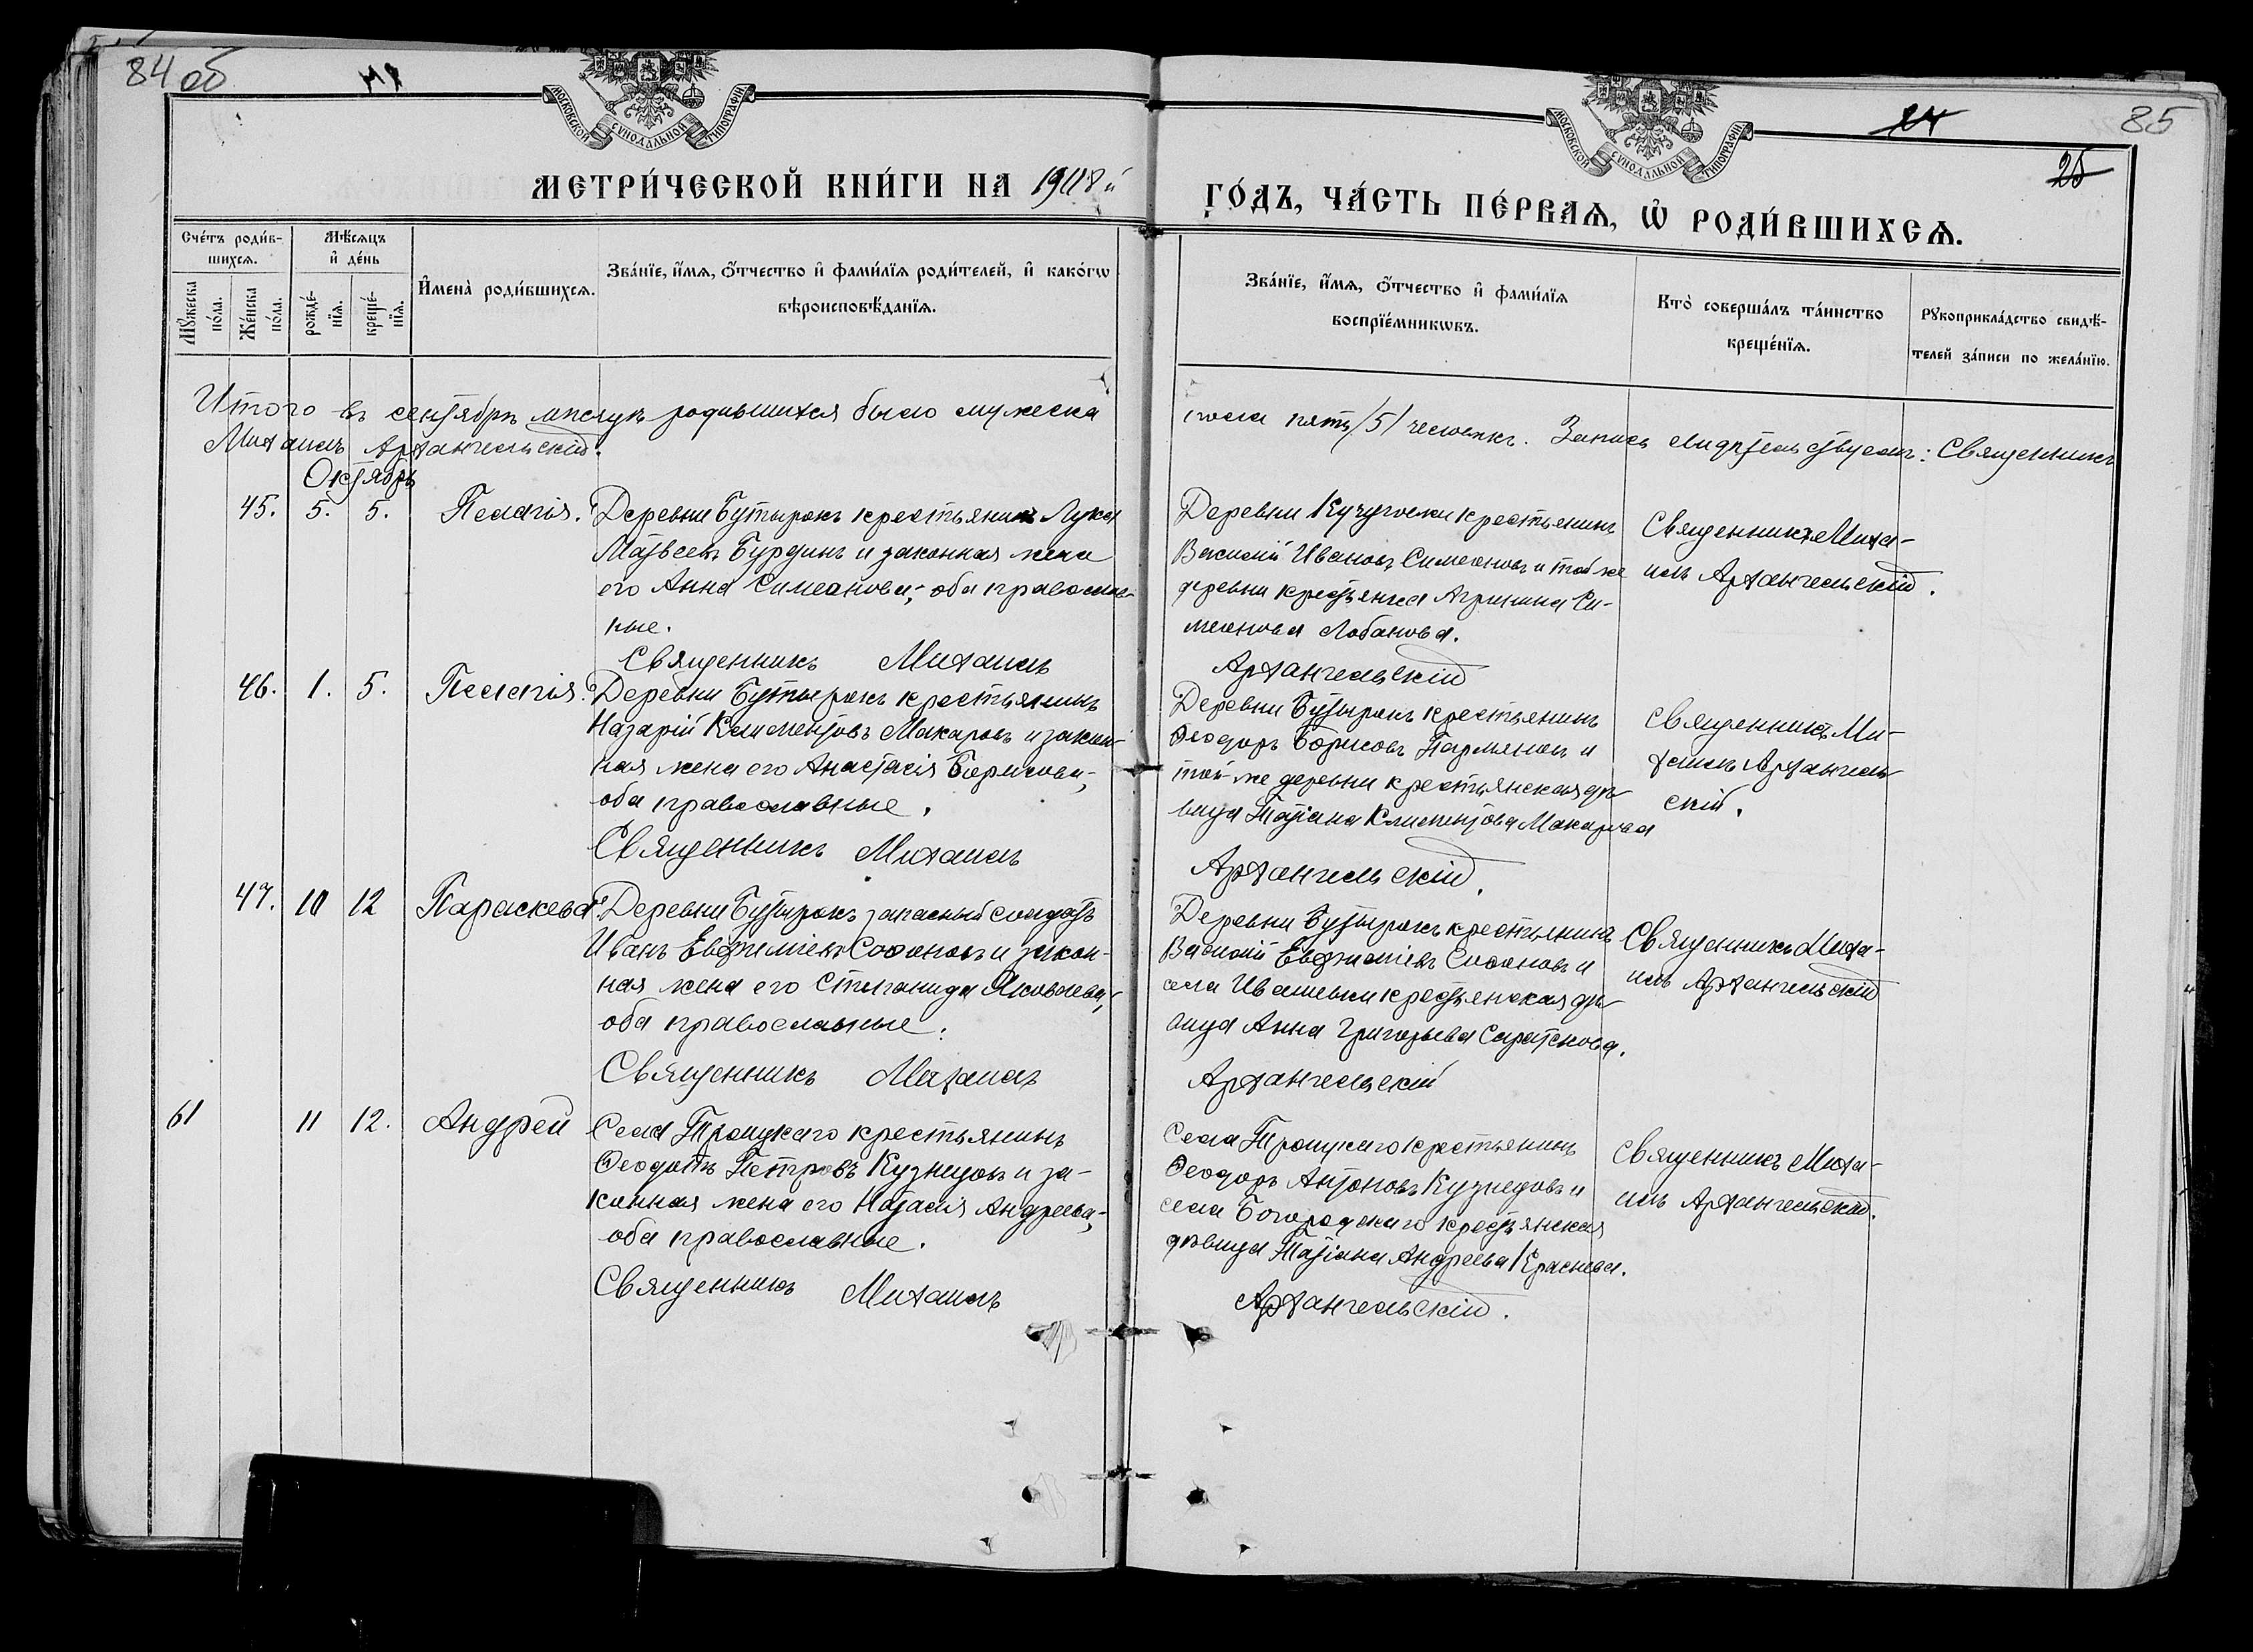 84 об
85
24
25
МОСКОВСКОЙ СУНОДАЛЬНОЙ ТИПОГРАФІИ
МОСКОВСКОЙ СУНОДАЛЬНОЙ ТИПОГРАФІИ
МЕТРИ́ЧЕСКОЙ КНИ́ГИ НА 1918й
ГО́ДЪ, ЧА́СТЬ ПЕ́РВАѦ, Ѡ РОДИ́ВШИХСѦ.
Сче́тъ роди́в-
шихсѧ.
Мѣ́сѧцъ
и҆ де́нь
Мꙋ́жеска
по́ла.
Же́нска
по́ла.
рожде́-
нїѧ.
креще́-
нїѧ.
И҆мена̀ роди́вшихсѧ.
Зва́нїе, и҆́мѧ, ѻ҆́тчество и҆ фами́лїѧ роди́телей, и҆ како́гѡ
вѣроисповѣ́данїѧ.
Зва́нїе, и҆́мѧ, ѻ҆́тчество и҆ фами́лїѧ
воспрїе́мникѡвъ.
Кто̀ соверша́лъ та́инство
креще́нїѧ.
Рꙋкоприкла́дство свидѣ́-
телей за́писи по жела́нїю.
Итого въ сентябрѣ мѣсяцѣ родившихся было мужеска
пола пять /5/ человѣкъ. Запись свидѣтельствуетъ: Священникъ
Михаилъ Архангельскій.
Октябрь
45. 5. 5. Пелагія.
Деревни Бутырокъ крестьянинъ Лука
Матвеевъ Бурдинъ и законная жена
его Анна Симеонова, оба православ-
ные.
Деревни Кучугоски крестьянинъ
Василій Ивановъ Симеоновъ и той же
деревни крестьянка Агрипина Си-
меонова Лобанова.
Священникъ Миха-
илъ Архангельскій.
Священникъ Михаилъ
Архангельскій
46. 1. 5. Пелагія.
Деревни Бутырокъ крестьянинъ
Назарій Климентовъ Макаровъ и закон-
ная жена его Анастасія Борисова,
оба православные.
Деревни Бутырокъ крестьянинъ
Ѳеодоръ Борисовъ и
той-же деревни крестьянская дѣ-
вица Татіана Климентова Макарова
Священникъ Ми-
хаилъ Архангель-
скій.
Священникъ Михаилъ
Архангельскій.
47. 10 12 Параскева.
Деревни Бутырокъ запасный солдатъ
Иванъ Евфиміевъ Софоновъ и закон-
ная жена его Стефанида Яковлева,
оба православные.
Деревни Бутырокъ крестьянинъ
Василій Евфиміевъ Софоновъ и
села Ивашевки крестьянская дѣ-
вица Анна Григорьева Саратскова.
Священникъ Миха-
илъ Архангельскій
Священникъ Михаилъ
Архангельскій
61 11 12. Андрей
Села Троицкаго крестьянинъ
Ѳеодотъ Петровъ Кузнецовъ и за-
конная жена его Наталія Андреева,
оба православные.
Села Троицкаго крестьянинъ
Ѳеодоръ Антоновъ Кузнецовъ и
села Богородскаго крестьянская
дѣвица Татіана Андреева
Священникъ Миха-
илъ Архангельскій.
Священникъ Михаилъ
Архангельскій.